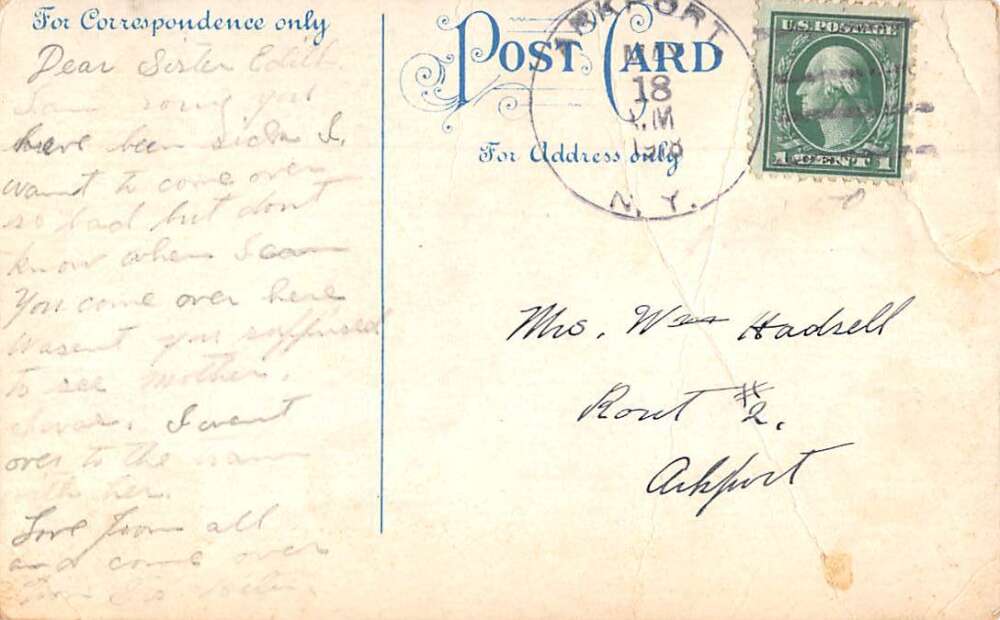 For Correspondence only
POST CARD
For Address only
ARKPORT
MAY
18
N.Y.
U.S. POSTAGE
1 CENT 1
Dear Sister Edith.
you
have been sick I.
want to come over
so bad but dont
know when I can
You come over here
Wasent you
to see mother.
I went
over to the
with her.
Love from all
and come over
Mrs. Wm Hadsell
Rout #2.
Arkport